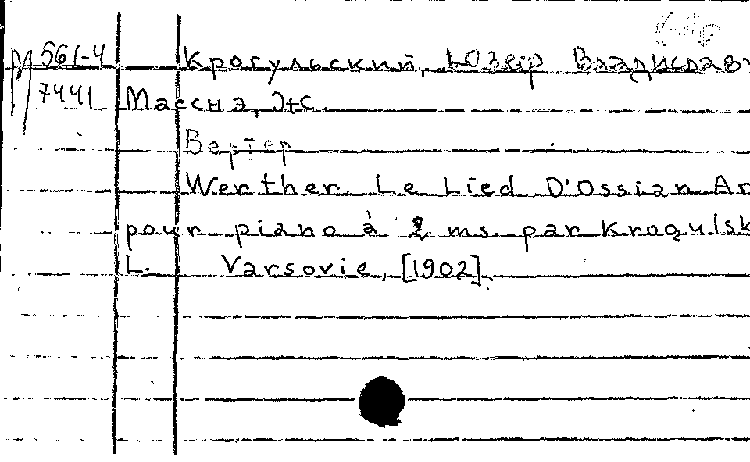 М 561-4 Крогульский, Юзеф Владислав
7441 Масснэ, Ж.
Вертер
Werther. Le Lied D'Ossian Ar
pour piano à 2 ms. par Krogulsk
L. Varsovie, [1902].